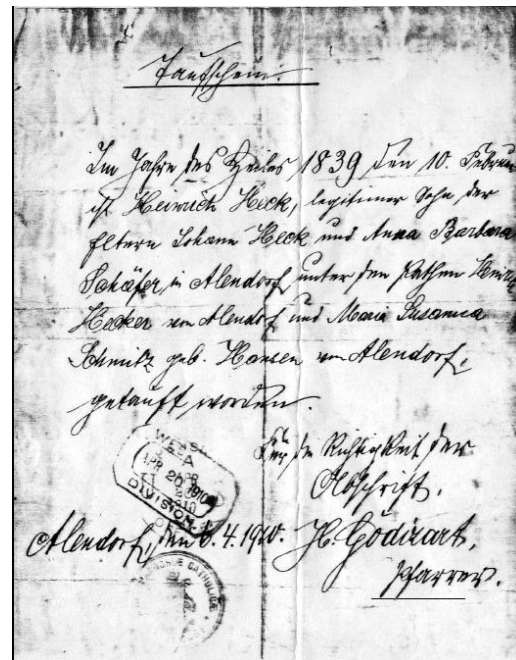 Taufschein.
Im Jahre des Heiles 1839 den 10. Februar
ist Heinrich Heck, legitimer Sohn der
Eltern Johann Heck und Anna Barbara
Schäfer, in Alendorf, unter den Pathen Henri
Hecker von Alendorf und Maria Susanna
Schmitz geb. Hansen von Alendorf,
getauft worden.
Für die Richtigkeit der
Abschrift.
WEST
APR 20 1910
DIVISION
Alendorf, den 6.4.1910. H. Gödizart,
Pfarrer.
CATHOLICAE